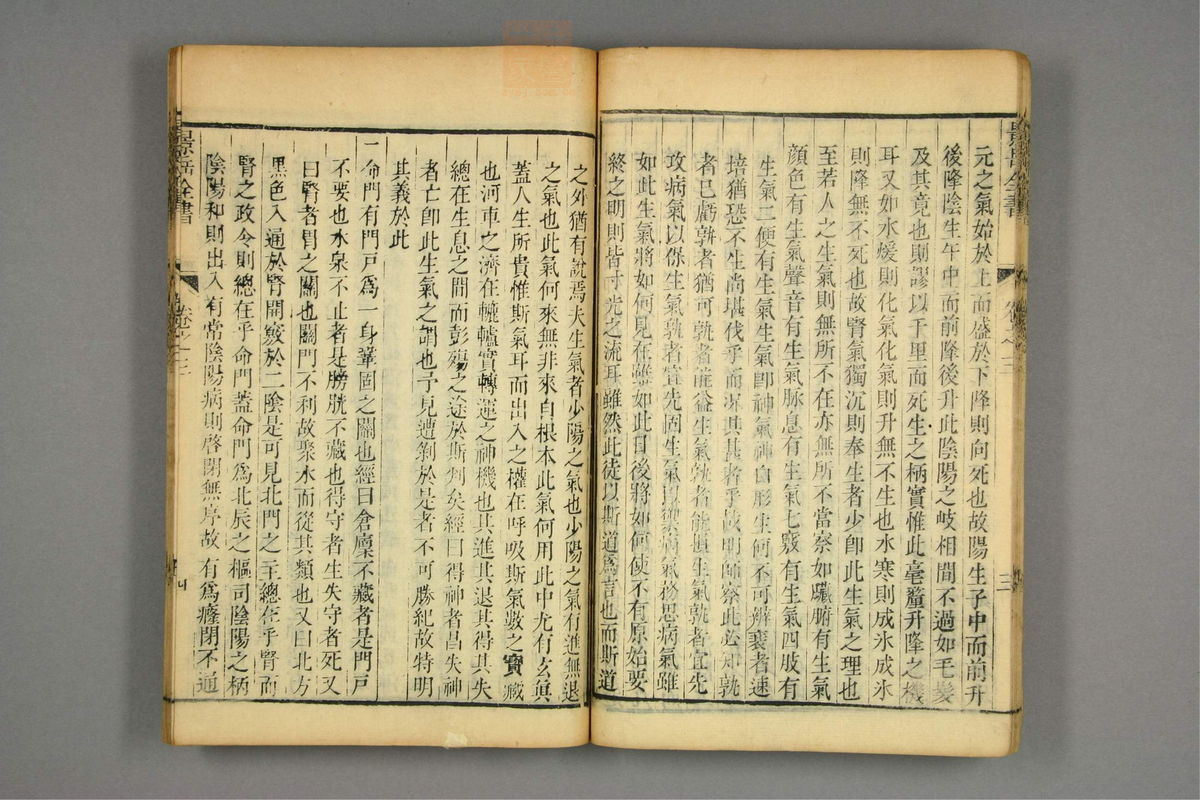 元之氣始於上而盛於下降則向死也故陽生子中而前升
後降陰生午中而前降後升此陰陽之岐相間不過如毛髮
及其竟也則謬以千里而死生之柄實惟此毫釐升降之機
耳又如水煖則化氣化氣則升無不生也水寒則成氷成氷
則降無不死也故腎氣獨沉則奉生者少即此生氣之理也
至若人之生氣則無所不在亦無所不當察如臟腑有生氣
顏色有生氣聲音有生氣脉息有生氣七竅有生氣四肢有
生氣二便有生氣生氣即神氣神自形生何不可辨衰者速
培猶恐不生尚堪伐乎而況其甚者乎故明師察此必知孰
者已虧孰者猶可孰者能益生氣孰者能損生氣孰者宜先
攻病氣以保生氣孰者宜先固生氣以禦病氣務思病氣雖
如此生氣將如何見在雖如此日後將如何使不有原始要
終之明則皆寸光之流耳雖然此徒以斯道爲言也而斯道
之外猶有說焉夫生氣者少陽之氣也少陽之氣有進無退
之氣也此氣何來無非來自根本此氣何用此中尤有玄眞
蓋人生所貴惟斯氣耳而出入之權在呼吸斯氣數之寶藏
也河車之濟在轆轤實轉運之神機也其進其退其得其失
總在生息之間而彭殤之途於斯判矣經曰得神者昌失神
者亡即此生氣之謂也予見遭剝於是者不可勝紀故特明
其義於此
一命門有門戶爲一身鞏固之關也經曰倉廩不藏者是門戶
不要也水泉不止者是膀胱不藏也得守者生失守者死又
曰腎者胃之關也關門不利故聚水而從其類也又曰北方
黑色入通於腎開竅於二陰是可見北門之主總在乎腎而
腎之政令則總在乎命門蓋命門爲北辰之樞司陰陽之柄
陰陽和則出入有常陰陽病則啓閉無序故有爲癃閉不通
景岳全書
卷之三
四
景岳全書
卷之三
三